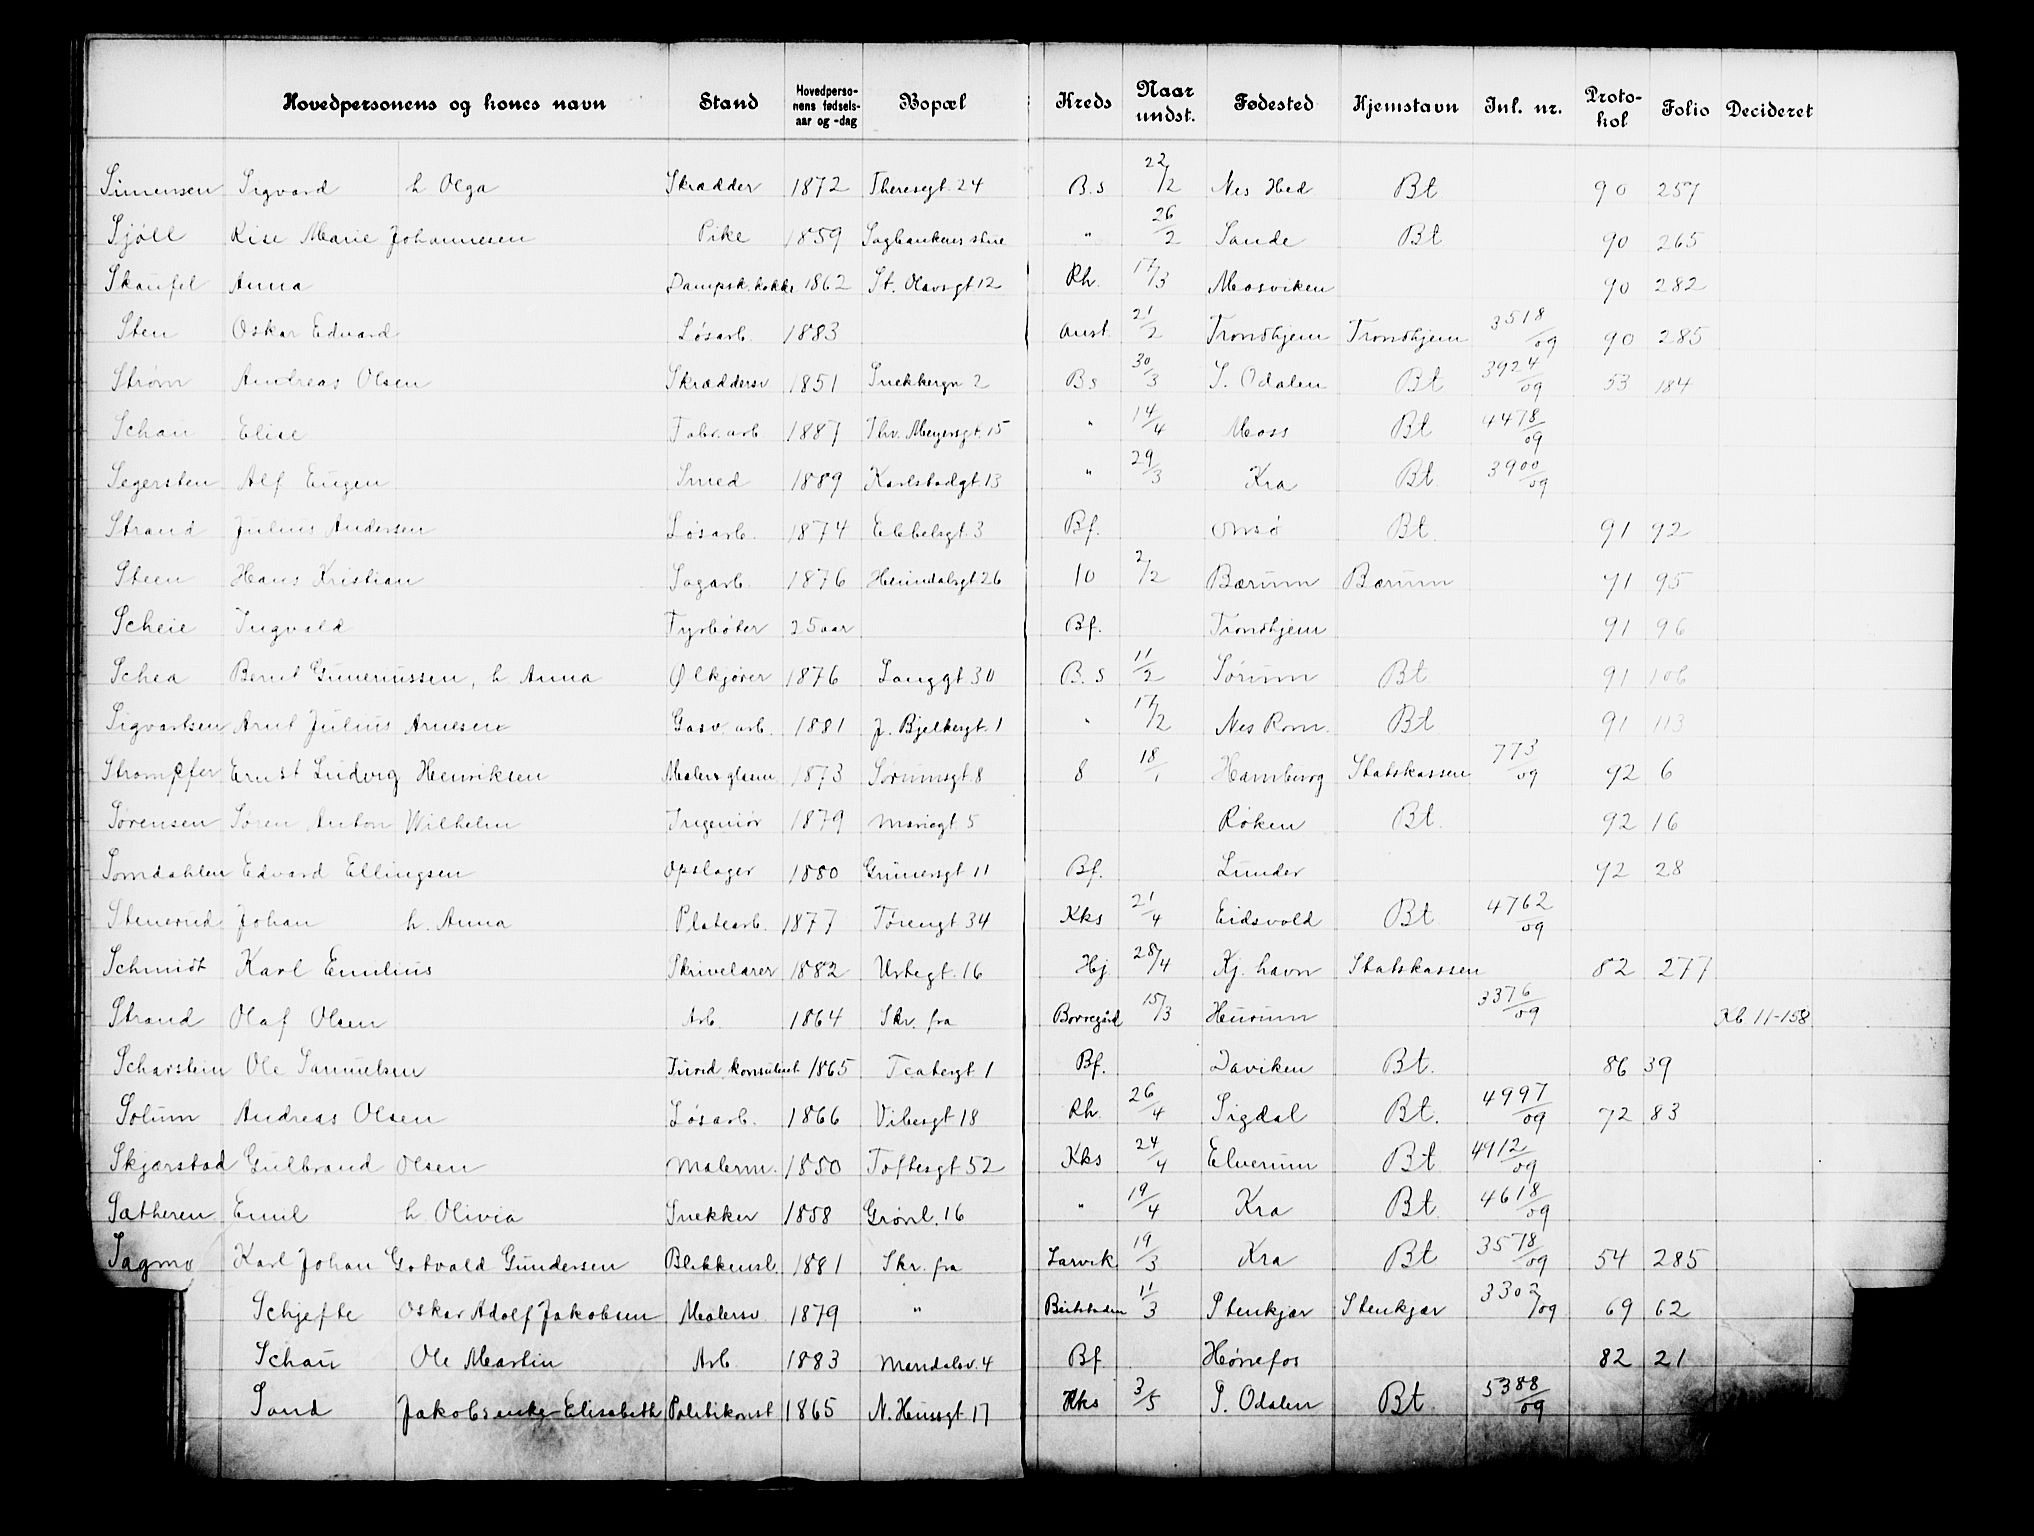 Hovedpersonens og kones navn Stand Hovedpersonens fødselsaar og -dag Bopæl Kreds Naar undst. Fødested Hjemstavn Inl. nr. Protokol Folio Decideret
Simensen Sigvard h Olga Skrædder 1872 Theresegt 24 B.s 22/2 Nes Hed Bt 90 257
Sjöll Marie Johannesen Pike 1859 Sagbankens stue " 26/2 Sande Bt 90 265
Skaufel Anna Dampsk. kokke 1862 St. Olavsgt 12 Rh. 17/3 Mosviken 90 282
Sten Oskar Edvard Løsarb 1883 Aust. 21/2 Trondhjem Trondhjem 3518/09 90 285
Strøm Andreas Olsen Skræddersv 1851 Snekkergn 2 Bs 30/3 S. Odalen Bt 3924/09 53 184
Schau Elise Fabr. arb 1887 Thv. Meyersgt. 15 " 14/4 Moss Bt 4478/09
Segersten Alf Eugen Smed 1889 Karlstadgt. 13 " 29/3 Kra Bt 3900/09
Strand Julius Andersen Løsarb. 1874 Ebbelsgt 3 Bf. Onsø Bt. 91 92
Steen Hans Kristian Sagarb. 1876 Heimdalsgt 26 10 2/2 Bærum Bærum 91 95
Scheie Ingvald Fyrbøter 25 aar Bf. Trondhjem 91 96
Schea Bernt Gunerinssen, h Anna Ølkjører 1876 Langgt 30 B. S 11/2 Sørum Bt 91 106
Sigvartsen Arnt Julius Arnesen Gasv. arb. 1881 J. Bjelkesgt. 1 " 17/2 Nes Rom. Bt 91 113
Strompfer Ernst Ludvig Henriksen Malers glasm 1873 Sørumsgt 8 8 18/1 Hamburg Statskassen 773/09 92 6
Sørensen Søren Anton Wilhelm Ingeniør 1879 Mariegt 5 Røken Bt. 92 16
Somdahlen Edvard Ellingsen Opslager 1880 Grünersgt 11 Bf. Lunder 92 28
Stenerud Johan h. Anna Platearb. 1877 Tørengt 34 Kks 21/4 Eidsvold Bt 4762/09
Schmidt Karl Emilius Skrivelærer 1882 Urtegt. 16 Hj. 28/4 Kj. havn Statskassen 82 277
Strand Olaf Olsen Arb. 1864 Skr. fra Borregård 15/3 Hurum 3376/09 Kb 11-158
Scharstein Ole Samuelsen Jurid. konsulent 1865 Teatergt 1 Bf. Daviken Bt. 86 39
Solum Andreas Olsen Løsarb. 1866 Vibesgt 18 Rh. 26/4 Sigdal Bt. 4997/09 72 83
Skjærstad Gulbrand Olsen Malerm. 1850 Toftesgt 52 Kks 24/4 Elverum Bt 4912/09
Sætheren Emil h. Olivia Snekker 1858 Grønl. 16 " 19/4 Kra Bt 4618/09
Sagmo Karl Johan Gotvald Gundersen Blikkensl. 1881 Skr. fra Larvik 19/3 Kra Bt 3578/09 54 285
Schjefte Oskar Adolf Jakobsen Malersv. 1879 " Beitstaden 11/3 Stenkjær Stenkjær 3302/09 69 62
Schau Ole Martin Arb 1883 Mandalsv. 4 Bf Hønefos 82 21
Sand Jakobs enke Elisabeth Politikonst 1865 N. Hussgt 17 Kks 3/5 S. Odalen Bt 5388/09